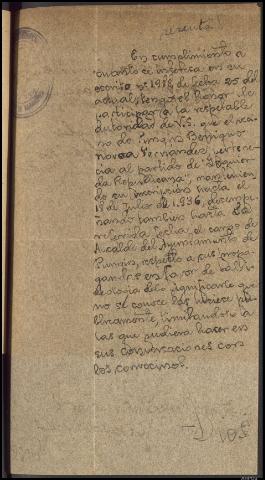 En cumplimiento a
cuanto se interesa en su
escrito nº 1918, de fecha 25 del
actual tengo el honor de
participar a la respetable
autoridad de V.S. que el veci
no de
Fernandez, pertene
cia al partido de "Izquier
da Republicana",
do su inscripcion hasta el
18 de Julio de 1.936, desempe
ñando tambien hasta la
referida fecha, el cargo de
Alcalde del Ayuntamiento de
respecto a sus propa
gandas en favor de dicha
ideologia debo significarle que
no se conoce las hiciese pu
blicamente, limitandose a
las que pudiera hacer en
sus conversaciones con
los convecinos.